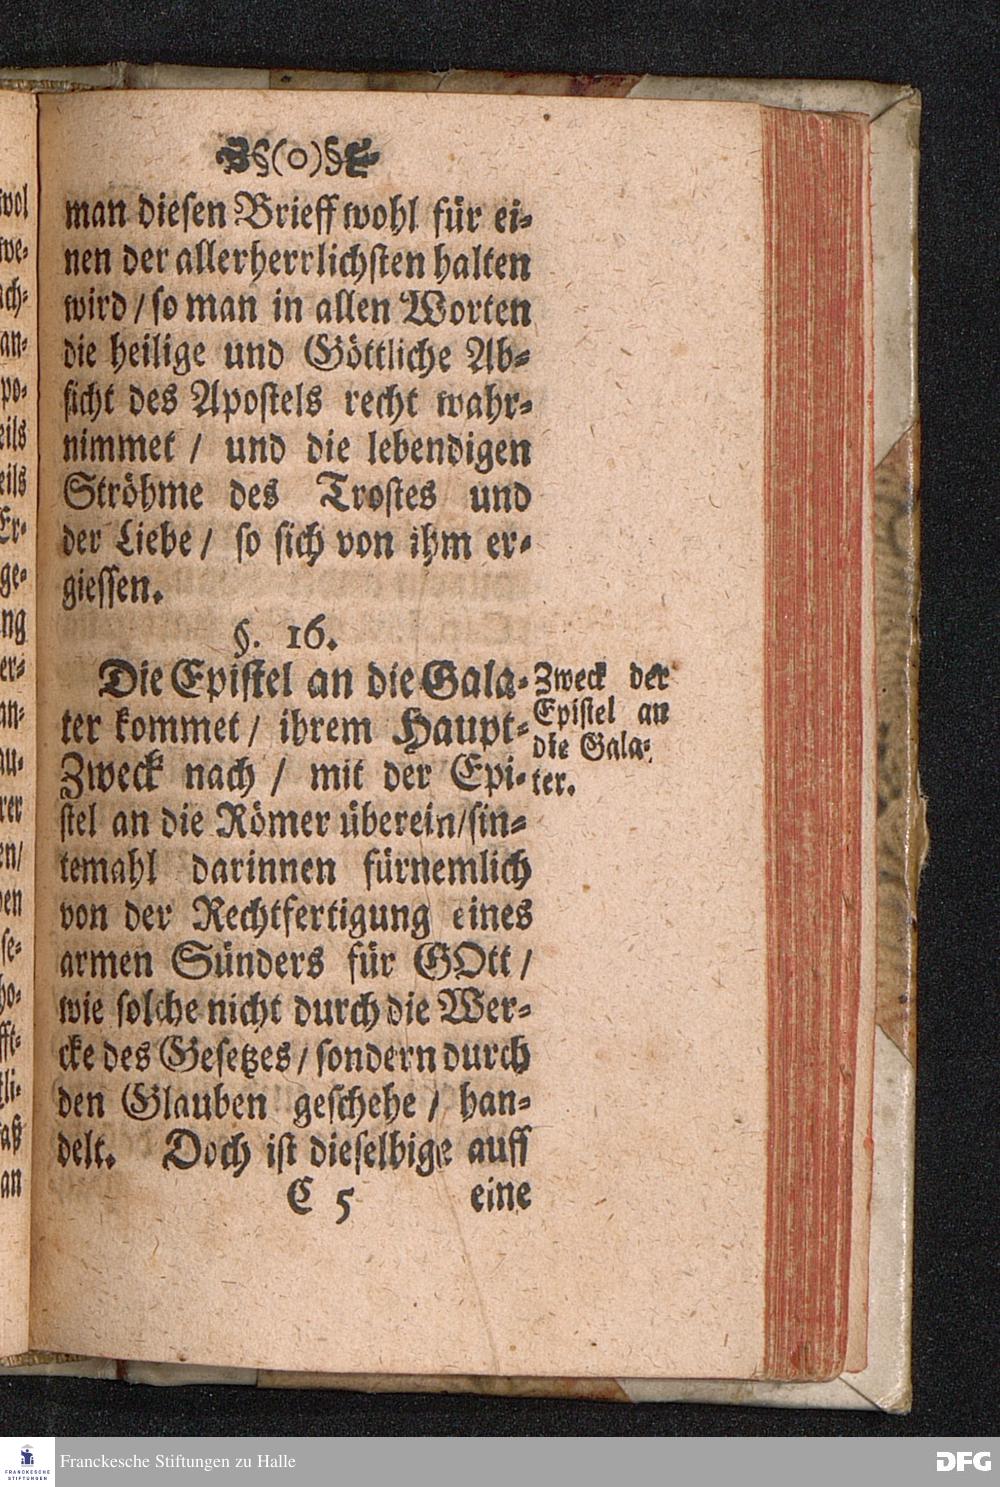 §(o)§
man diesen Brieff wohl für ei-
nen der allerherrlichsten halten
wird / so man in allen Worten
die heilige und Göttliche Ab-
sicht des Apostels recht wahr-
nimmet / und die lebendigen
Ströhme des Trostes und
der Liebe / so sich von ihm er-
giessen.
§. 16.
Die Epistel an die Gala-
ter kommet / ihrem Haupt-
Zweck nach / mit der Epi-
stel an die Römer überein/sin-
temahl darinnen fürnemlich
von der Rechtfertigung eines
armen Sünders für GOtt /
wie solche nicht durch die Wer-
cke des Gesetzes / sondern durch
den Glauben geschehe / han-
delt. Doch ist dieselbige auff
Zweck der
Epistel an
die Gala-
ter.
C 5 eine
Franckesche Stiftungen zu Halle
FRANCKESCHE
STIFTUNGEN
DFG